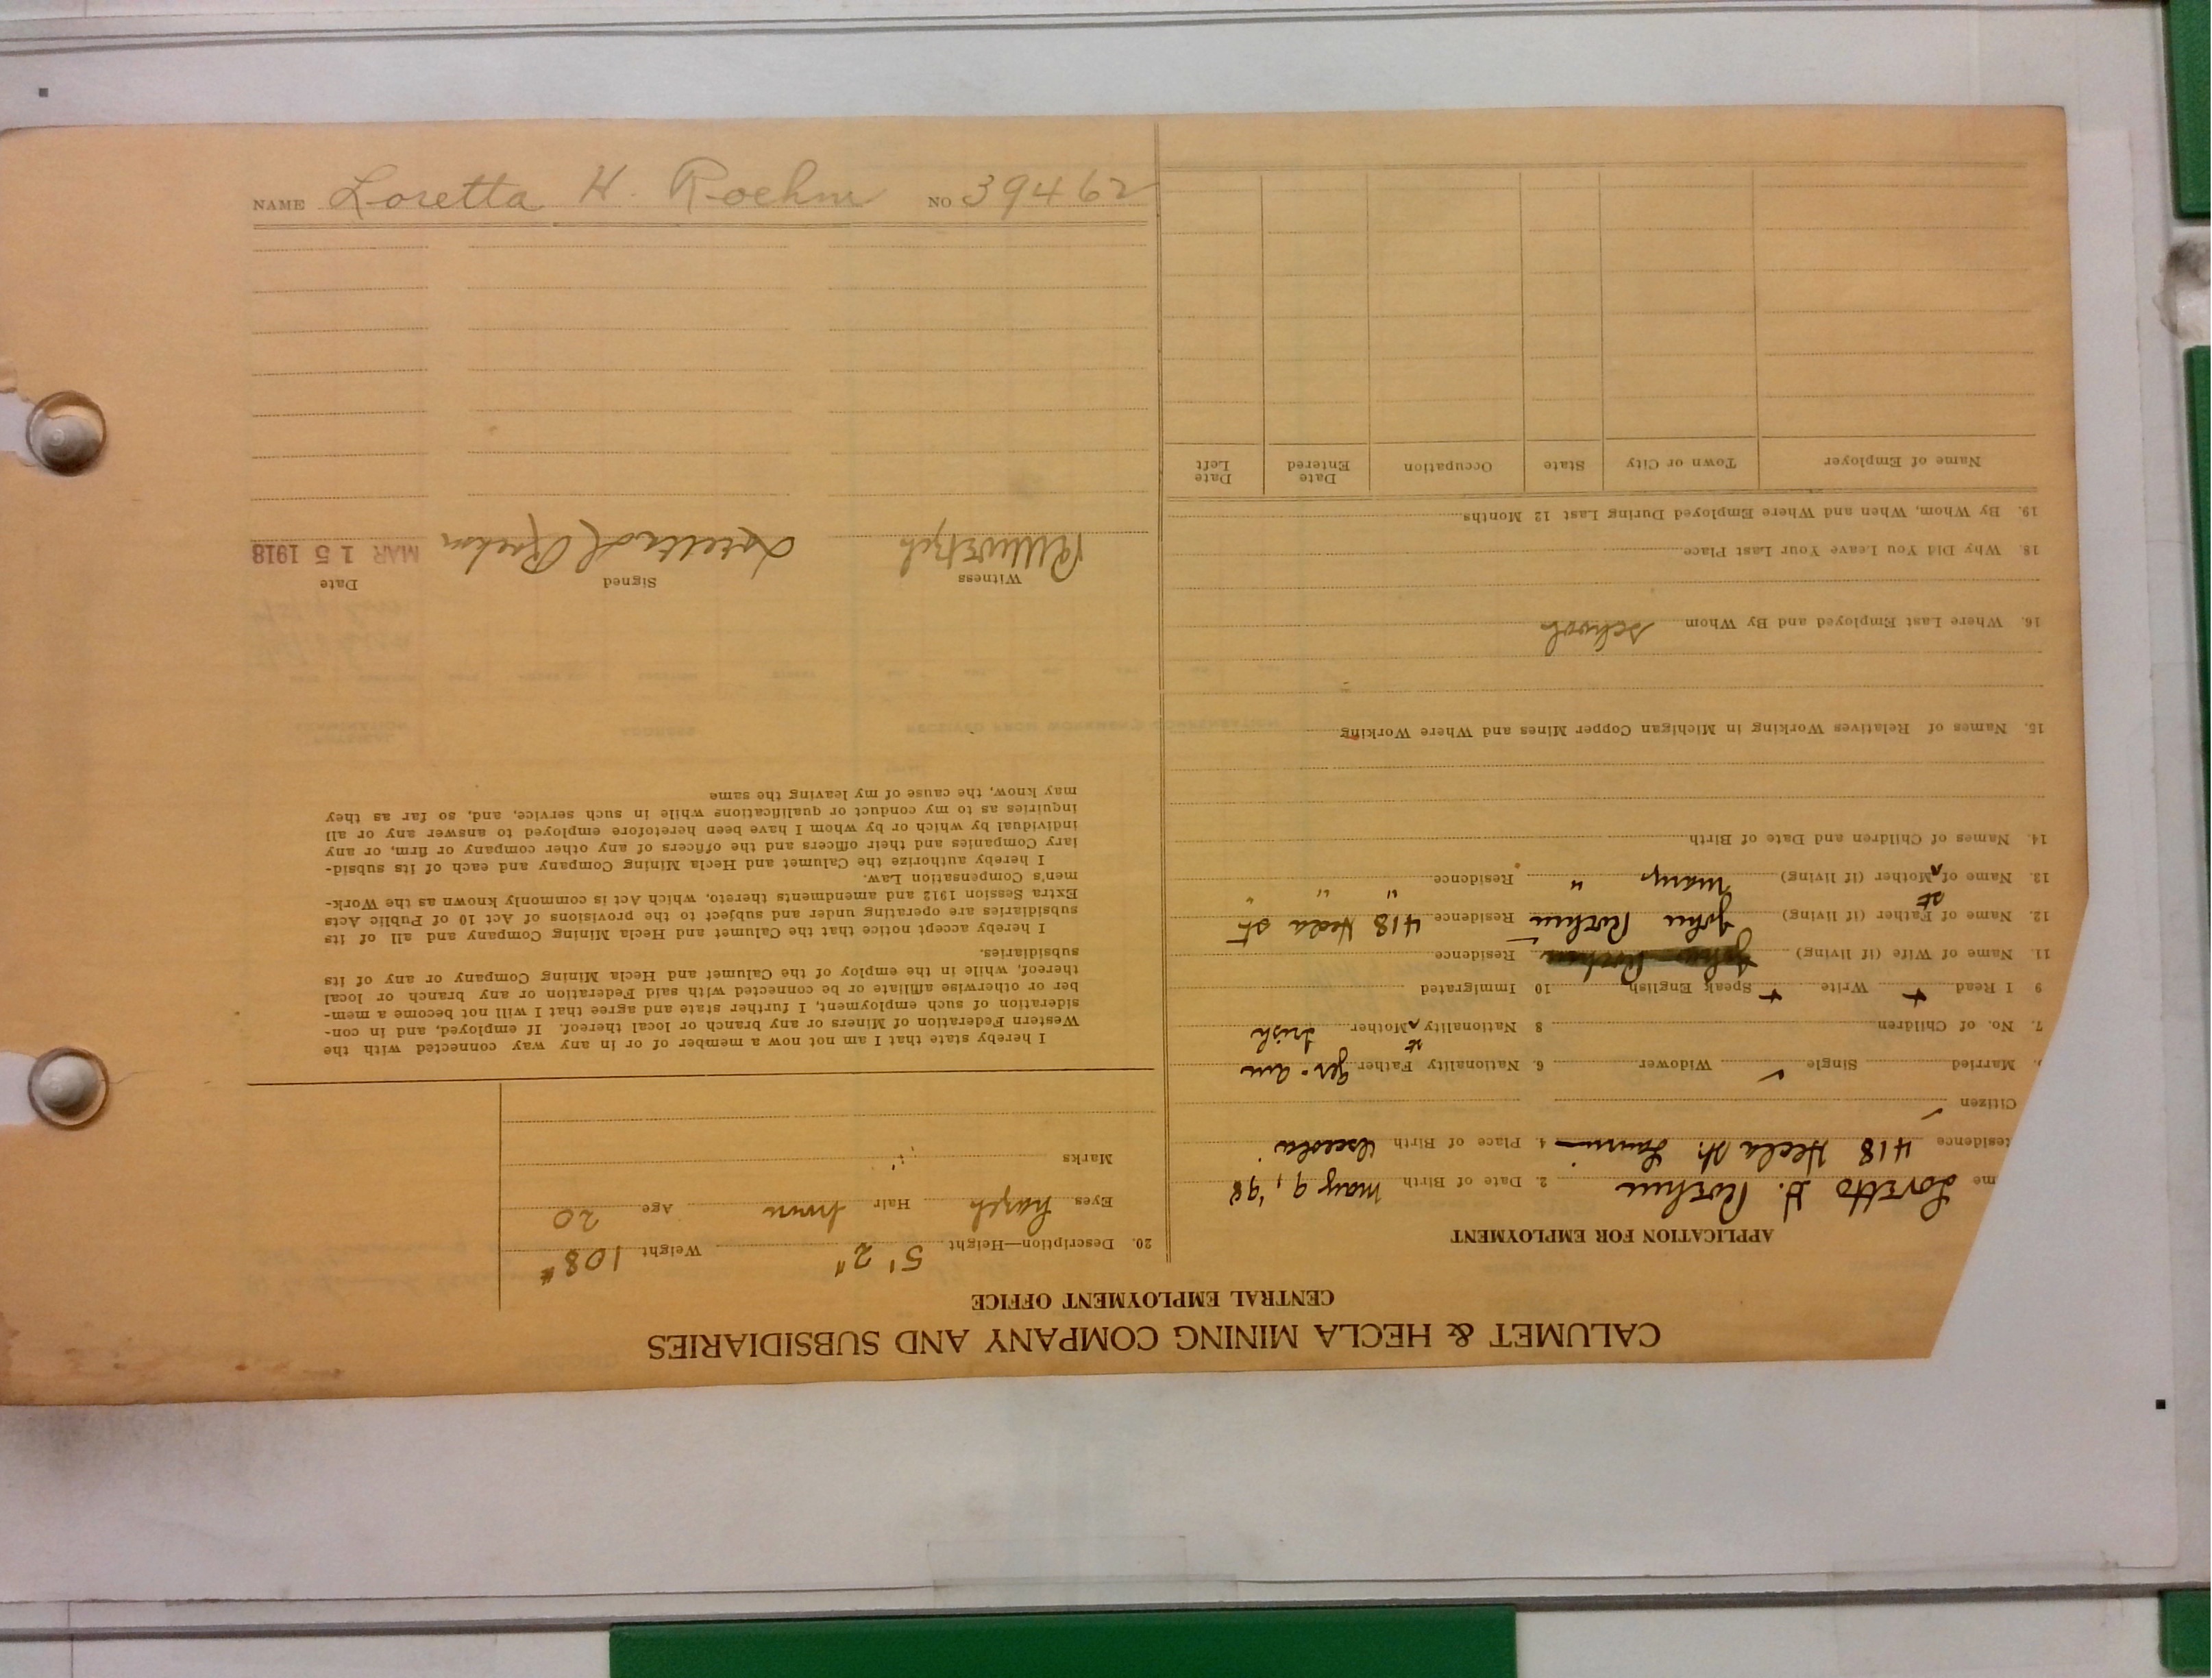 CALUMET & HECLA MINING COMPANY AND SUBSIDIARIES
CENTRAL EMPLOYMENT OFFICE
APPLICATION FOR EMPLOYMENT
me Loretto H. Roehm 2. Date of Birth May 9, '98
esidence 418 Hecla St. Laurium 4. Place of Birth Osceola
Citizen ✓
Married Single ✓ Widower 6. Nationality of Father Ger-Am
7. No. of Children 8 Nationality of Mother Irish
9 I Read + Write + Speak English 10 Immigrated
11. Name of Wife (if living) Residence
12. Name of Father (if living) John Roehm Residence 418 Hecla St
13. Name of Mother (if living) Mary " Residence " " "
14. Names of Children and Date of Birth
15. Names of Relatives Working in Michigan Copper Mines and Where Working
16. Where Last Employed and By Whom School
18. Why Did You Leave Your Last Place
19. By Whom, When and Where Employed During Last 12 Months
Name of Employer Town or City State Occupation Date Entered Date Left
20. Description—Height 5' 2" Weight 108#
Eyes hazel Hair brown Age 20
Marks
I hereby state that I am not now a member of or in any way connected with the
Western Federation of Miners or any branch or local thereof. If employed, and in con-
sideration of such employment, I further state and agree that I will not become a mem-
ber or otherwise affiliate or be connected with said Federation or any branch or local
thereof, while in the employ of the Calumet and Hecla Mining Company or any of its
subsidiaries.
I hereby accept notice that the Calumet and Hecla Mining Company and all of its
subsidiaries are operating under and subject to the provisions of Act 10 of Public Acts
Extra Session 1912 and amendments thereto, which Act is commonly known as the Work-
men's Compensation Law.
I hereby authorize the Calumet and Hecla Mining Company and each of its subsid-
iary Companies and their officers and the officers of any other company or firm, or any
individual by which or by whom I have been heretofore employed to answer any or all
inquiries as to my conduct or qualifications while in such service, and, so far as they
may know, the cause of my leaving the same
Witness Signed Date
Loretta H Roehm MAR 15 1918
NAME Loretta H. Roehm NO 39462